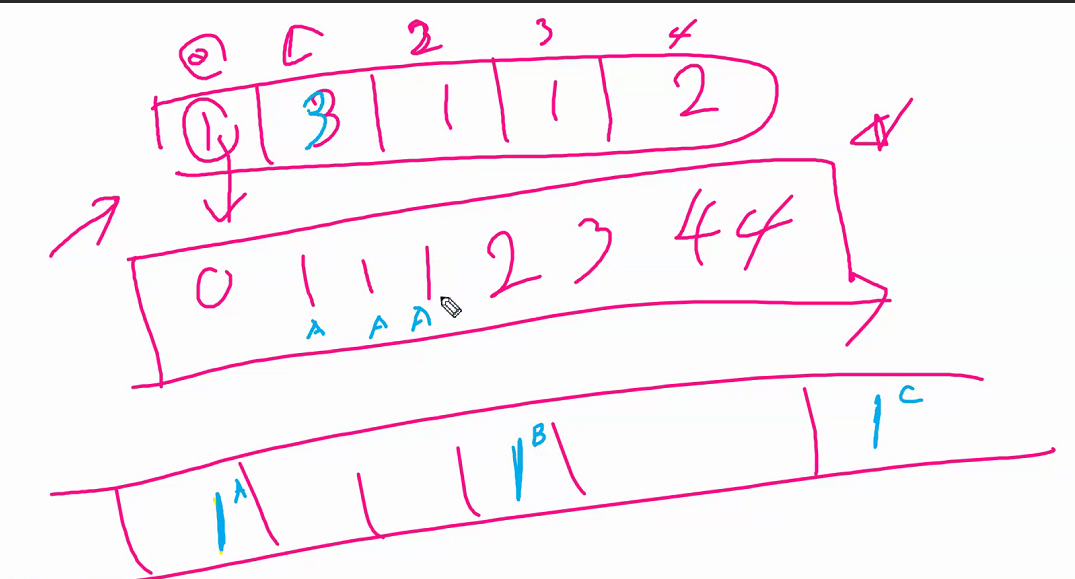 0 1 2 3 4
1 3 1 1 2
0 1 1 1 2 3 4 4
A A A
1 A 1 B 1 C